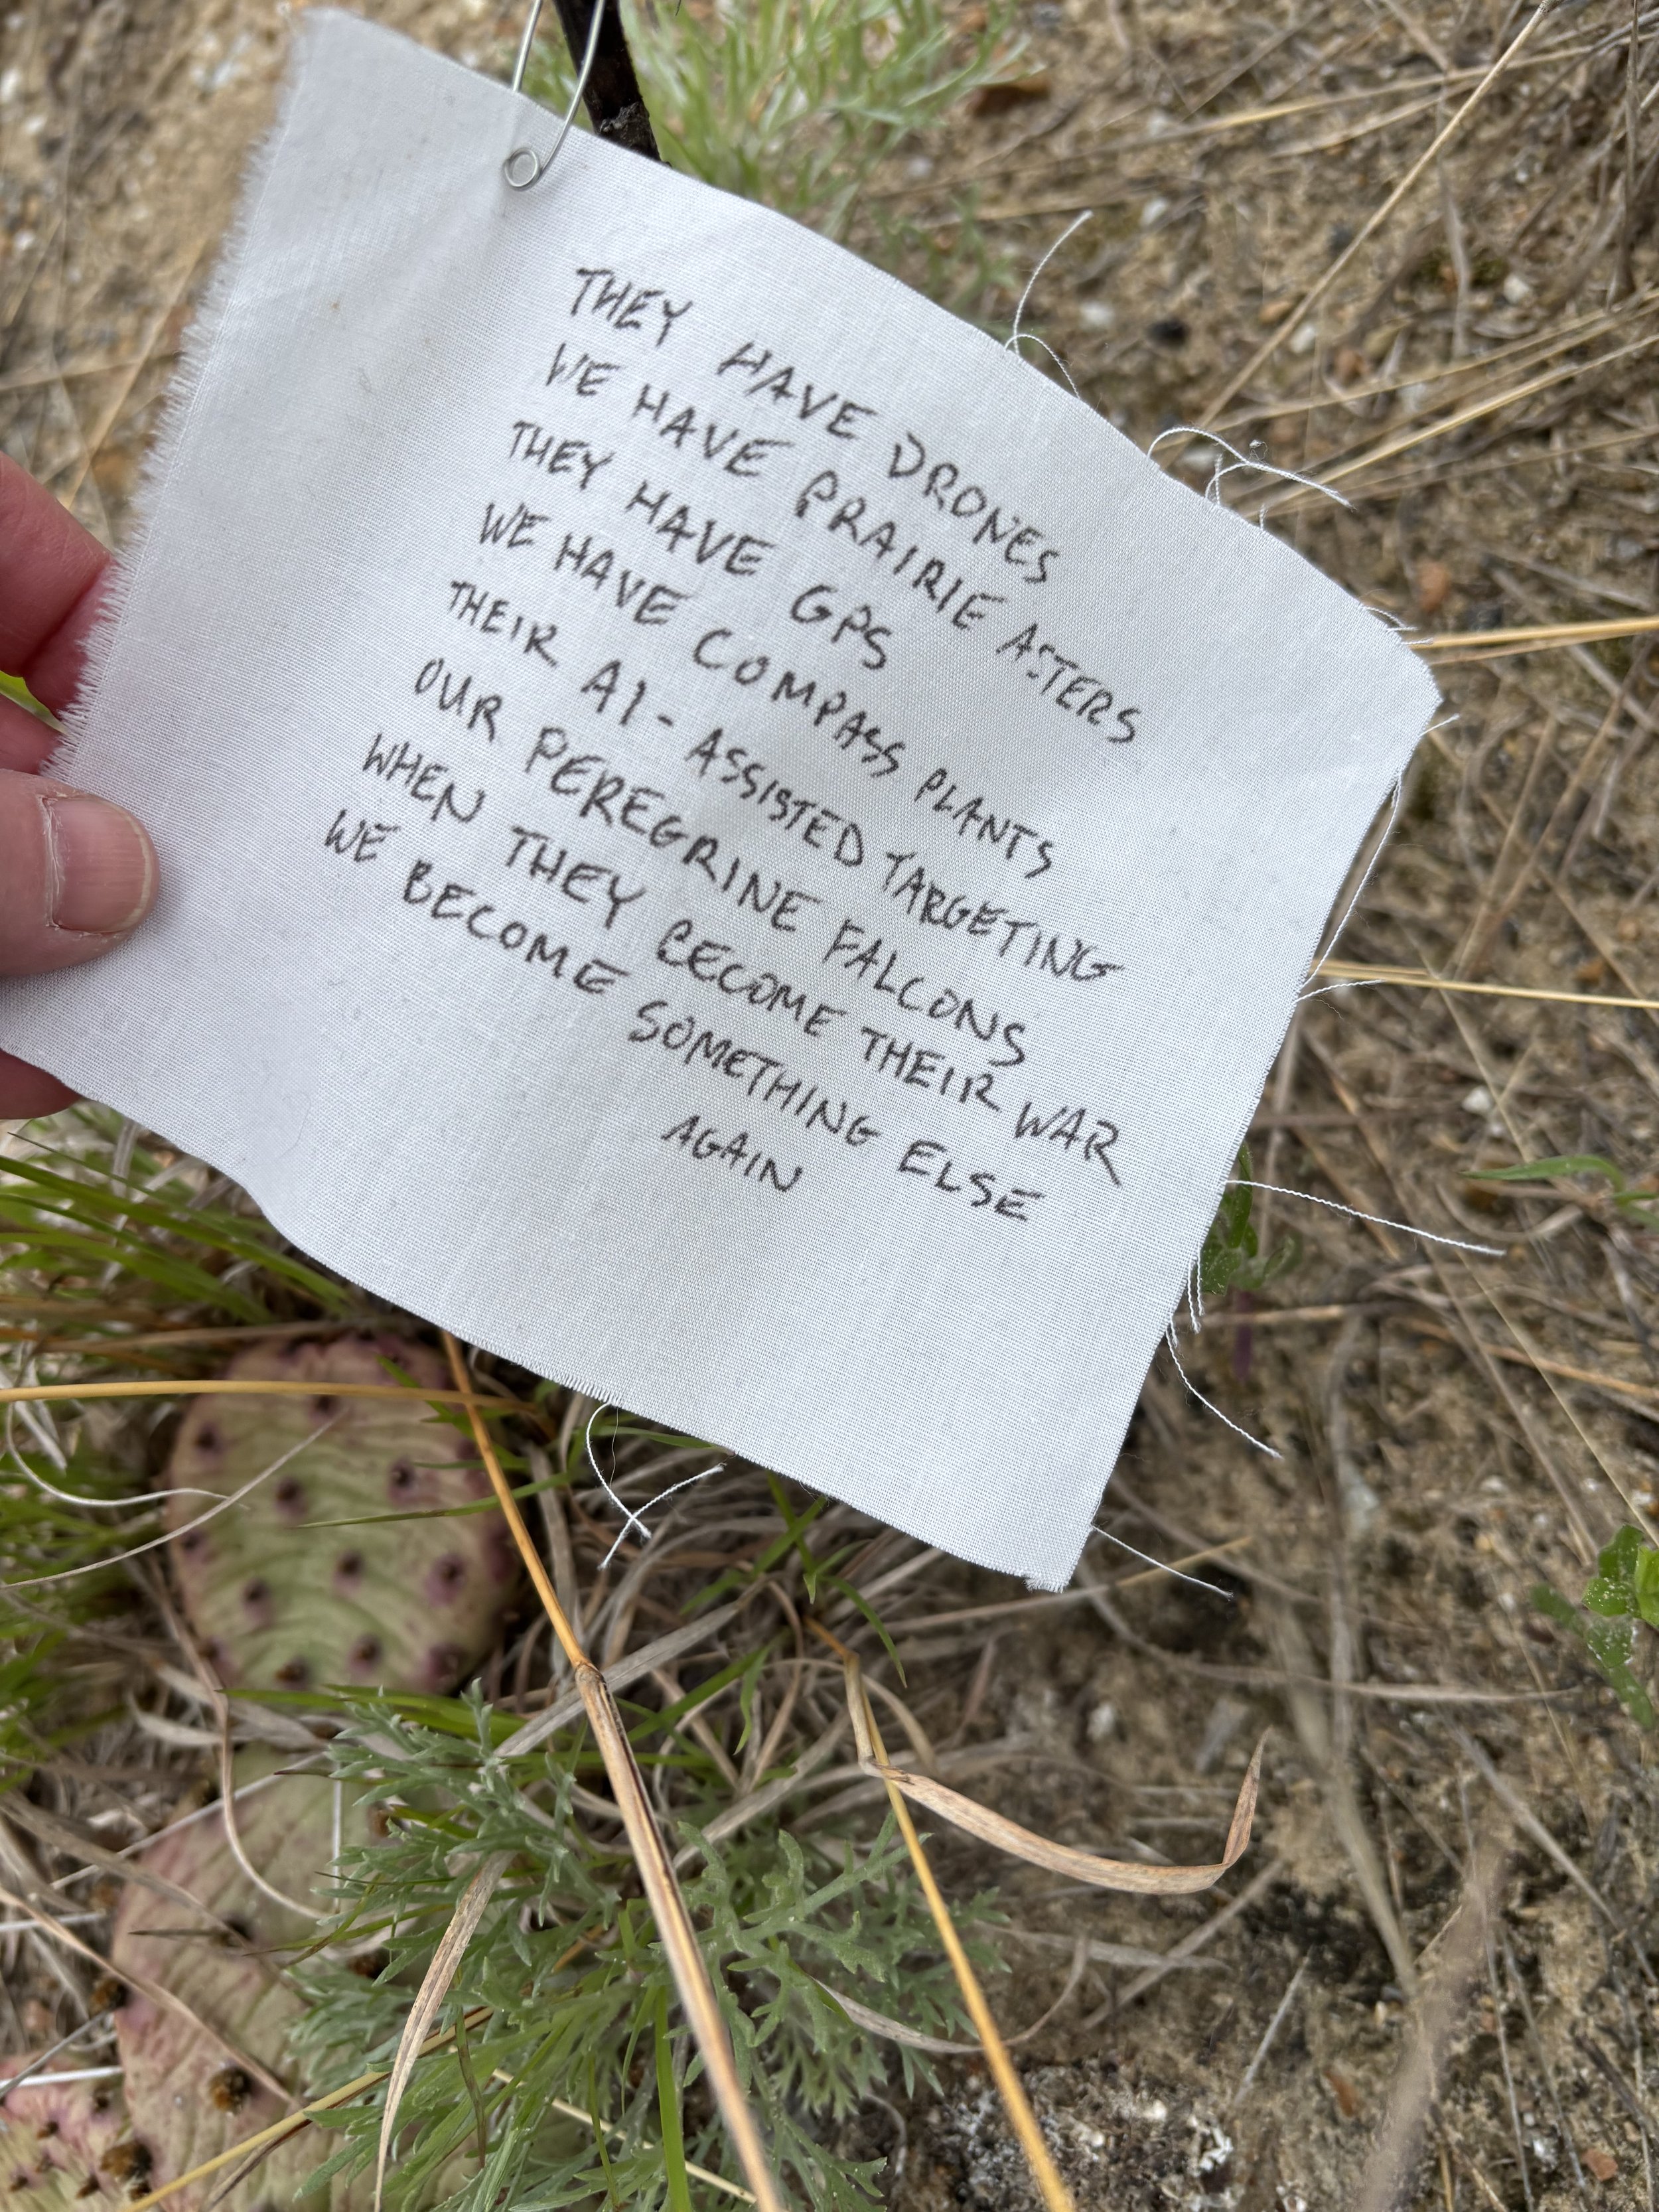 THEY HAVE DRONES
WE HAVE PRAIRIE ASTERS
THEY HAVE GPS
WE HAVE COMPASS PLANTS
THEIR AI-ASSISTED TARGETING
OUR PEREGRINE FALCONS
WHEN THEY BECOME THEIR WAR
WE BECOME SOMETHING ELSE
AGAIN